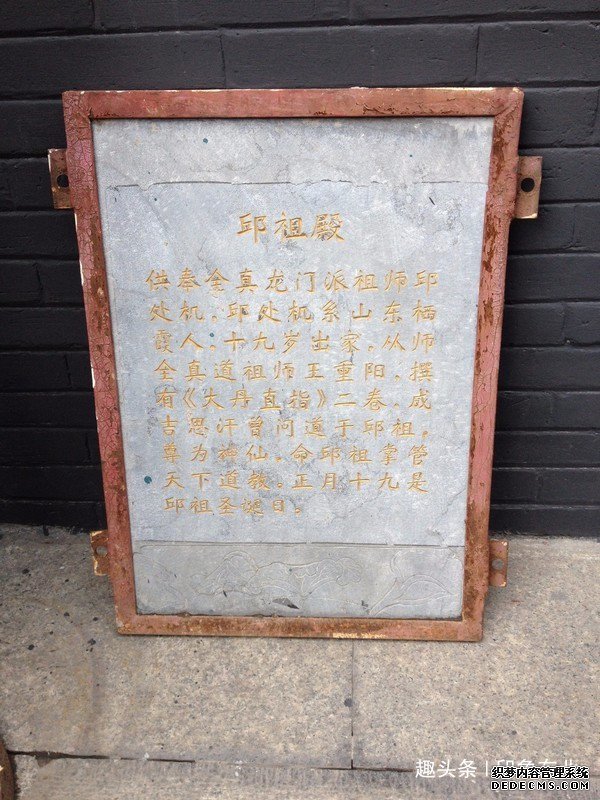 邱祖殿
供奉全真龙门派祖师邱
处机。邱处机系山东栖
霞人。十九岁出家。从师
全真道祖师王重阳。撰
有《大丹直指》二卷。成
吉思汗曾问道于邱祖。
尊为神仙。命邱祖掌管
天下道教。正月十九是
邱祖圣诞日。
趣头条
织梦内容管理系统
DEDECMS.COM